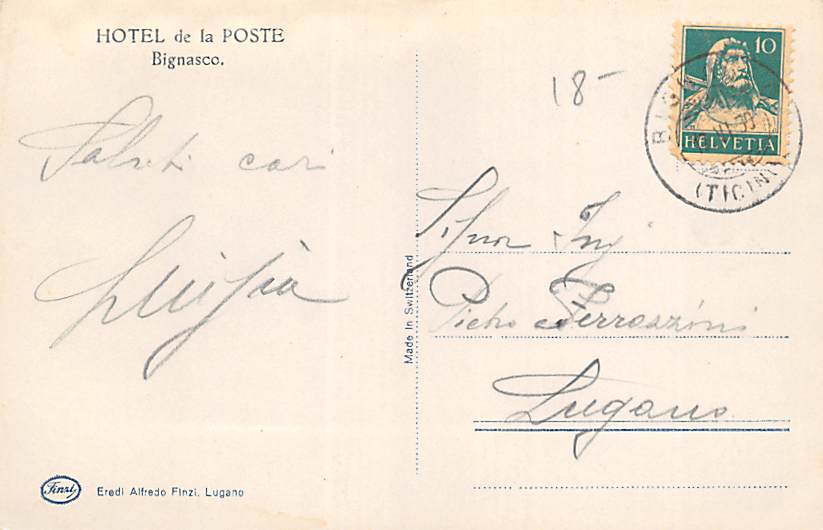 HOTEL de la POSTE
Bignasco.
Saluti cari
Luigia
18-
10
HELVETIA
BIG
(TICINO)
Signor Ing
Pietro Ferrazzini
Lugano
Made in Switzerland
Finzi
Eredi Alfredo Finzi, Lugano